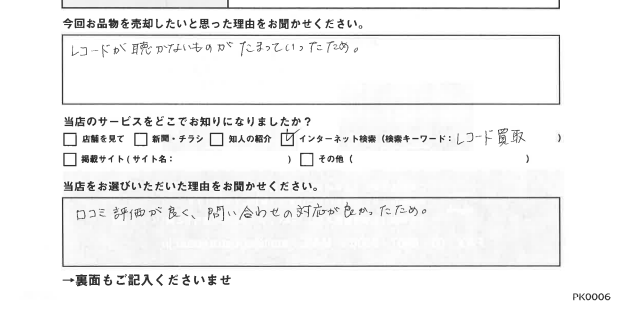 今回お品物を売却したいと思った理由をお聞かせください。
レコードが聴かないものがたまっていったため。
当店のサービスをどこでお知りになりましたか？
□ 店舗を見て □ 新聞・チラシ □ 知人の紹介 ☑ インターネット検索（検索キーワード：レコード買取 ）
□ 掲載サイト（サイト名： ） □ その他（ ）
当店をお選びいただいた理由をお聞かせください。
口コミ評価が良く、問い合わせの対応が良かったため。
→裏面もご記入くださいませ
PK0006